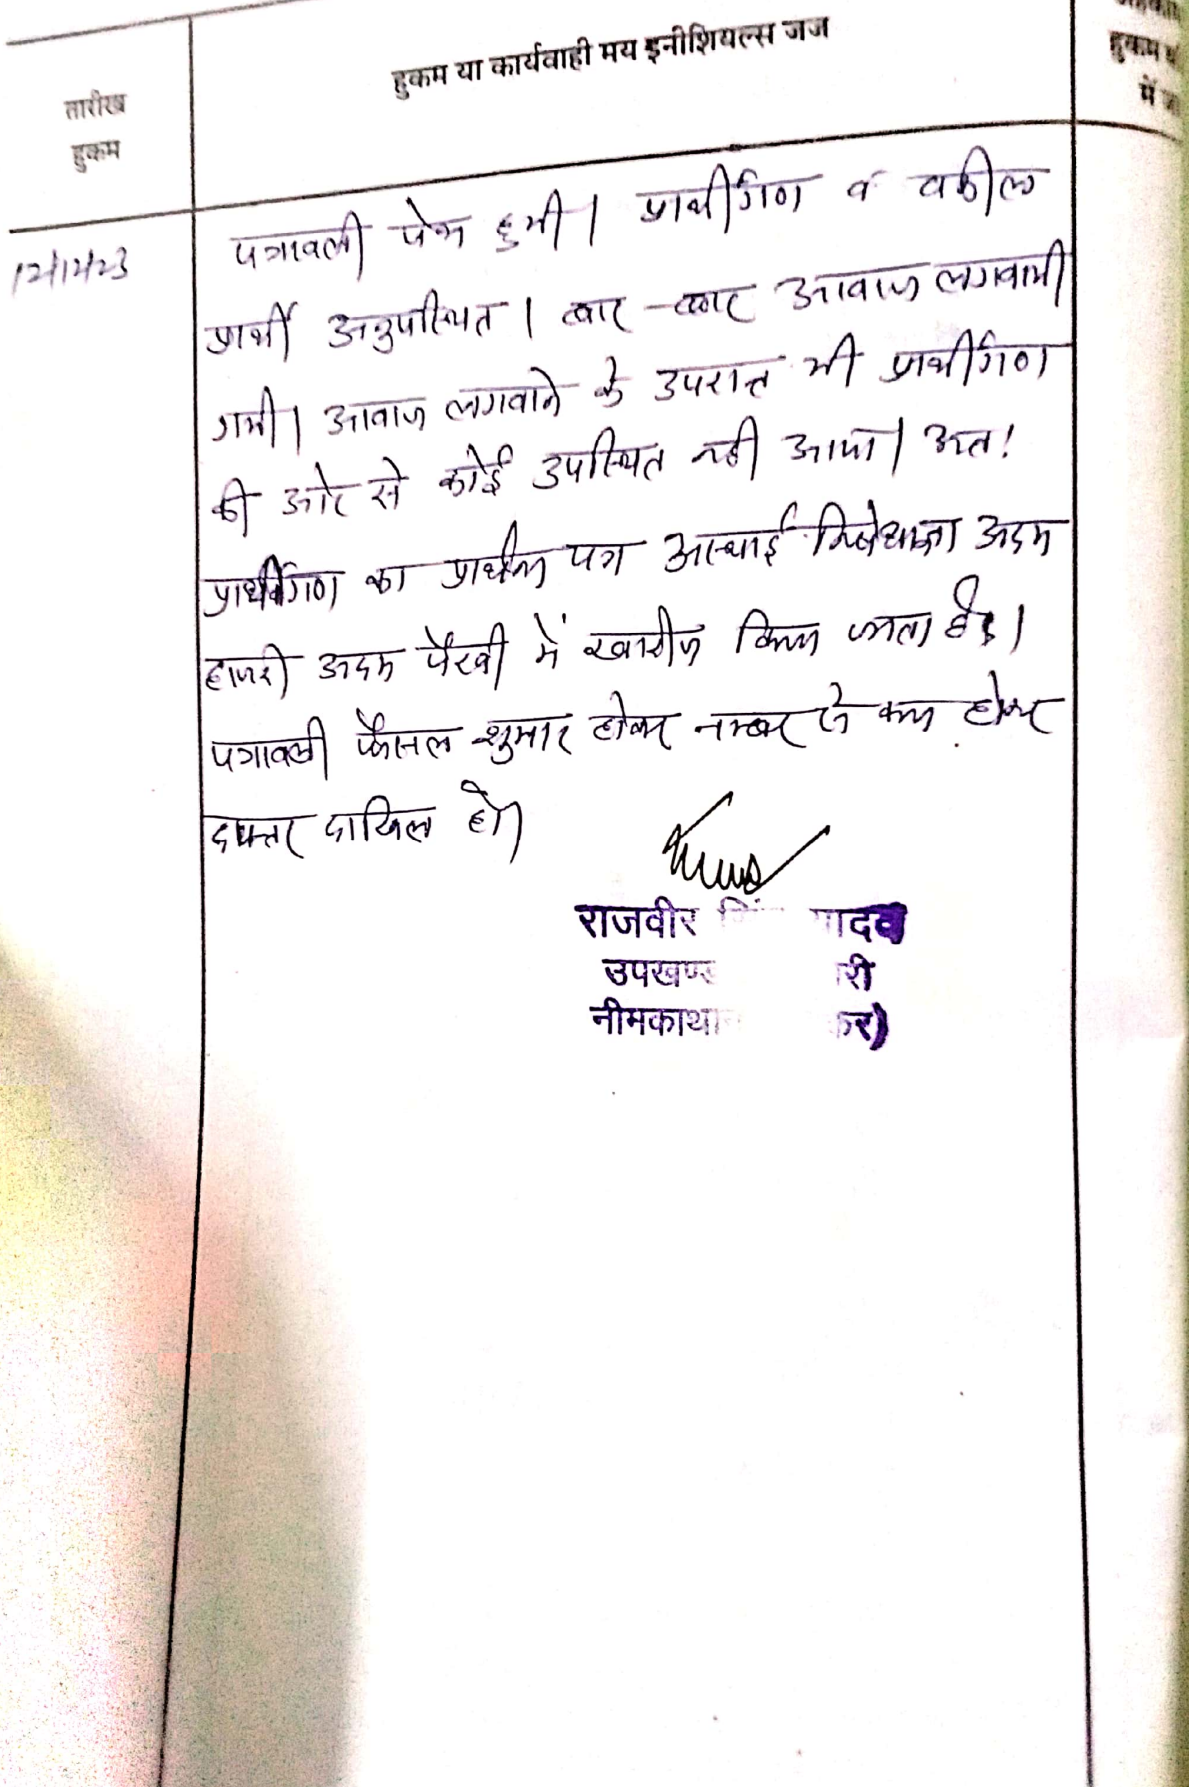 तारीख
हुकम
हुकम या कार्यवाही मय इनीशियल्स जज
हुकम
में
पत्रावली पेश हुयी। प्रार्थीगण व वकील
प्रार्थी अनुपस्थित। बार-बार आवाज लगवायी
गयी। आवाज लगवाने के उपरान्त भी प्रार्थीगण
की ओर से कोई उपस्थित नही आया। अत!
प्रार्थीगण का प्रार्थना पत्र अस्थाई निषेधाज्ञा अदम
हाजरी अदम पैरवी में खारीज किया जाता है।
पत्रावली फैसल शुमार होकर नम्बर से कम होकर
दफ्तर दाखिल हो।
राजवीर सिं यादव
उपखण्ड री
नीमकाथा कर)